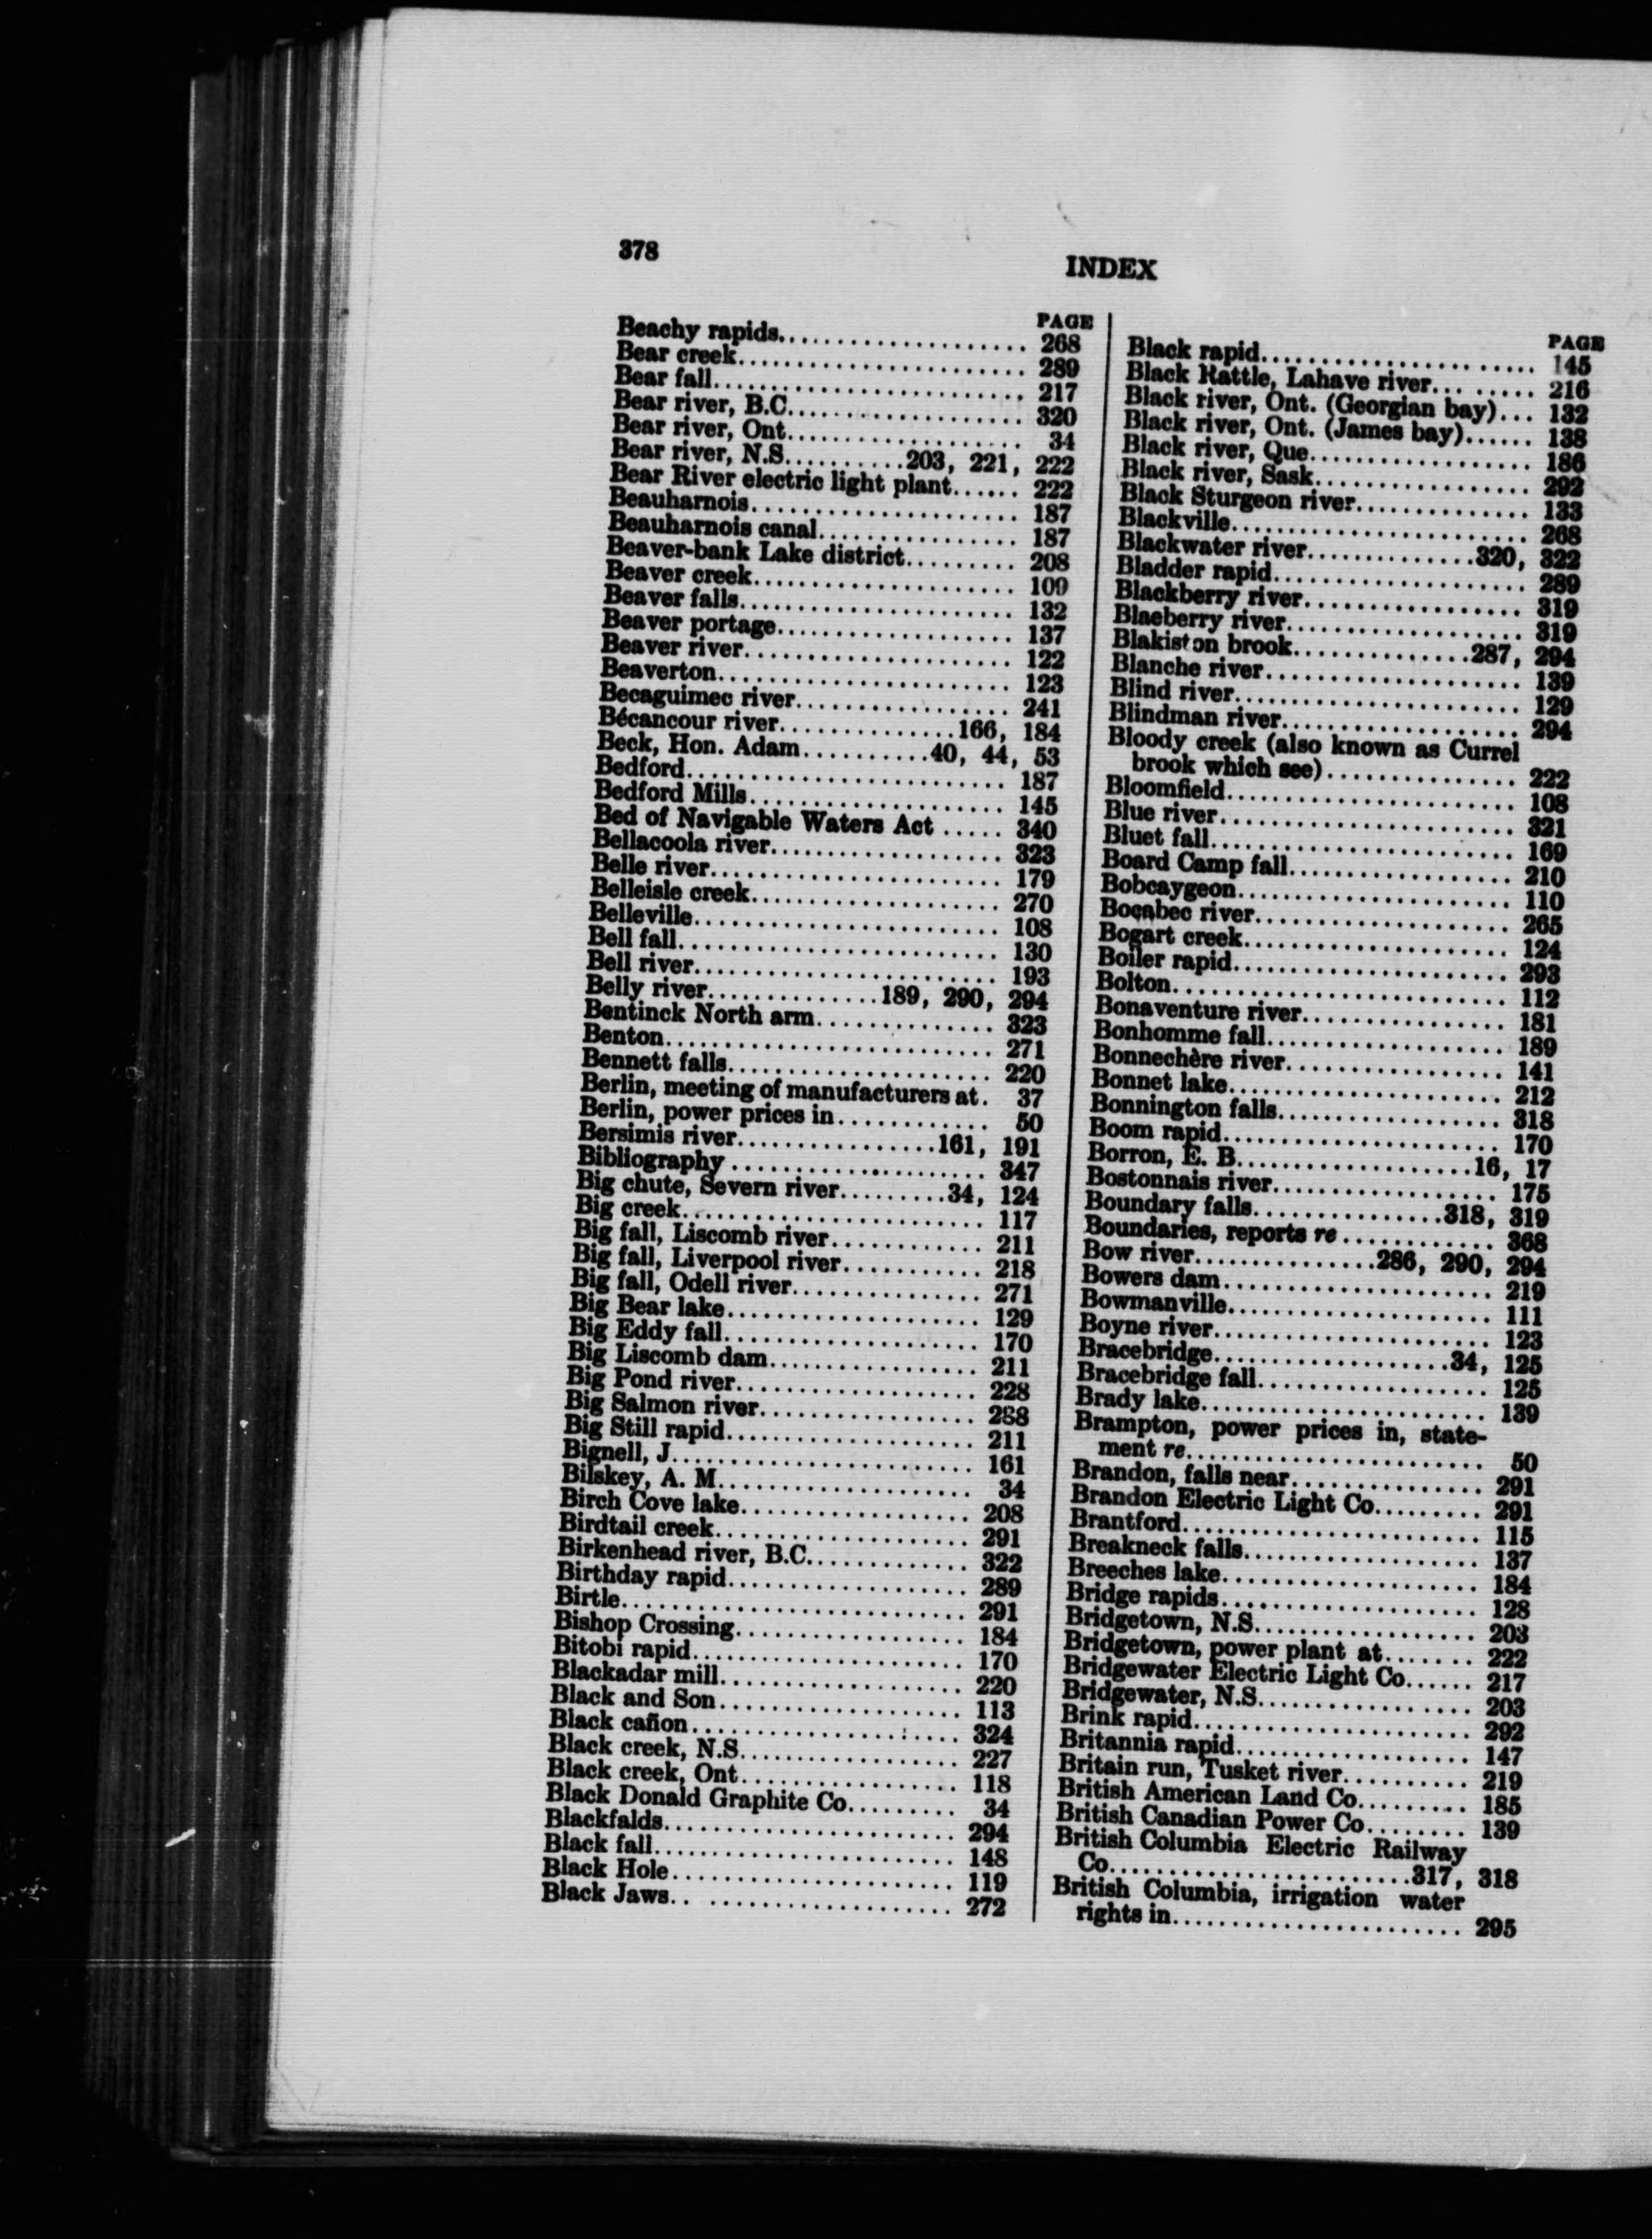 378
INDEX
PAGE
Beachy rapids.................... 268
Bear creek........................ 289
Bear fall.......................... 217
Bear river, B.C................... 320
Bear river, Ont................... 34
Bear river, N.S..........203, 221, 222
Bear River electric light plant...... 222
Beauharnois...................... 187
Beauharnois canal................ 187
Beaver-bank Lake district......... 208
Beaver creek...................... 109
Beaver falls....................... 132
Beaver portage................... 137
Beaver river...................... 122
Beaverton........................ 123
Becaguimec river................. 241
Bécancour river..............166, 184
Beck, Hon. Adam..........40, 44, 53
Bedford.......................... 187
Bedford Mills.................... 145
Bed of Navigable Waters Act ..... 340
Bellacoola river................... 323
Belle river........................ 179
Belleisle creek.................... 270
Belleville......................... 108
Bell fall.......................... 130
Bell river......................... 193
Belly river..............189, 290, 294
Bentinck North arm.............. 323
Benton........................... 271
Bennett falls..................... 220
Berlin, meeting of manufacturers at. 37
Berlin, power prices in............ 50
Bersimis river................161, 191
Bibliography ..................... 347
Big chute, Severn river.........34, 124
Big creek......................... 117
Big fall, Liscomb river............ 211
Big fall, Liverpool river........... 218
Big fall, Odell river............... 271
Big Bear lake..................... 129
Big Eddy fall..................... 170
Big Liscomb dam................. 211
Big Pond river.................... 228
Big Salmon river.................. 268
Big Still rapid.................... 211
Bignell, J......................... 161
Bilskey, A. M..................... 34
Birch Cove lake................... 208
Birdtail creek..................... 291
Birkenhead river, B.C............. 322
Birthday rapid.................... 289
Birtle............................ 291
Bishop Crossing................... 184
Bitobi rapid...................... 170
Blackadar mill.................... 220
Black and Son.................... 113
Black cañon...................... 324
Black creek, N.S.................. 227
Black creek, Ont.................. 118
Black Donald Graphite Co......... 34
Blackfalds........................ 294
Black fall......................... 148
Black Hole....................... 119
Black Jaws.. .................... 272
PAGE
Black rapid....................... 145
Black Rattle, Lahave river......... 216
Black river, Ont. (Georgian bay)... 132
Black river, Ont. (James bay)...... 138
Black river, Que.................. 186
Black river, Sask.................. 292
Black Sturgeon river.............. 133
Blackville........................ 268
Blackwater river..............320, 322
Bladder rapid..................... 289
Blackberry river.................. 319
Blaeberry river.................... 319
Blakiston brook...............287, 294
Blanche river..................... 139
Blind river........................ 129
Blindman river.................... 294
Bloody creek (also known as Currel
brook which see)................ 222
Bloomfield........................ 108
Blue river......................... 321
Bluet fall......................... 169
Board Camp fall.................. 210
Bobcaygeon....................... 110
Bocabec river..................... 265
Bogart creek...................... 124
Boiler rapid....................... 293
Bolton............................ 112
Bonaventure river................. 181
Bonhomme fall.................... 189
Bonnechère river.................. 141
Bonnet lake....................... 212
Bonnington falls.................. 318
Boom rapid....................... 170
Borron, E. B....................16, 17
Bostonnais river................... 175
Boundary falls................318, 319
Boundaries, reports re ............. 368
Bow river................286, 290, 294
Bowers dam....................... 219
Bowmanville...................... 111
Boyne river....................... 123
Bracebridge....................34, 125
Bracebridge fall................... 125
Brady lake........................ 139
Brampton, power prices in, state-
ment re......................... 50
Brandon, falls near................ 291
Brandon Electric Light Co......... 291
Brantford......................... 115
Breakneck falls.................... 137
Breeches lake..................... 184
Bridge rapids..................... 128
Bridgetown, N.S................... 203
Bridgetown, power plant at........ 222
Bridgewater Electric Light Co...... 217
Bridgewater, N.S.................. 203
Brink rapid....................... 292
Britannia rapid.................... 147
Britain run, Tusket river........... 219
British American Land Co......... 185
British Canadian Power Co........ 139
British Columbia Electric Railway
Co.........................317, 318
British Columbia, irrigation water
rights in........................ 295